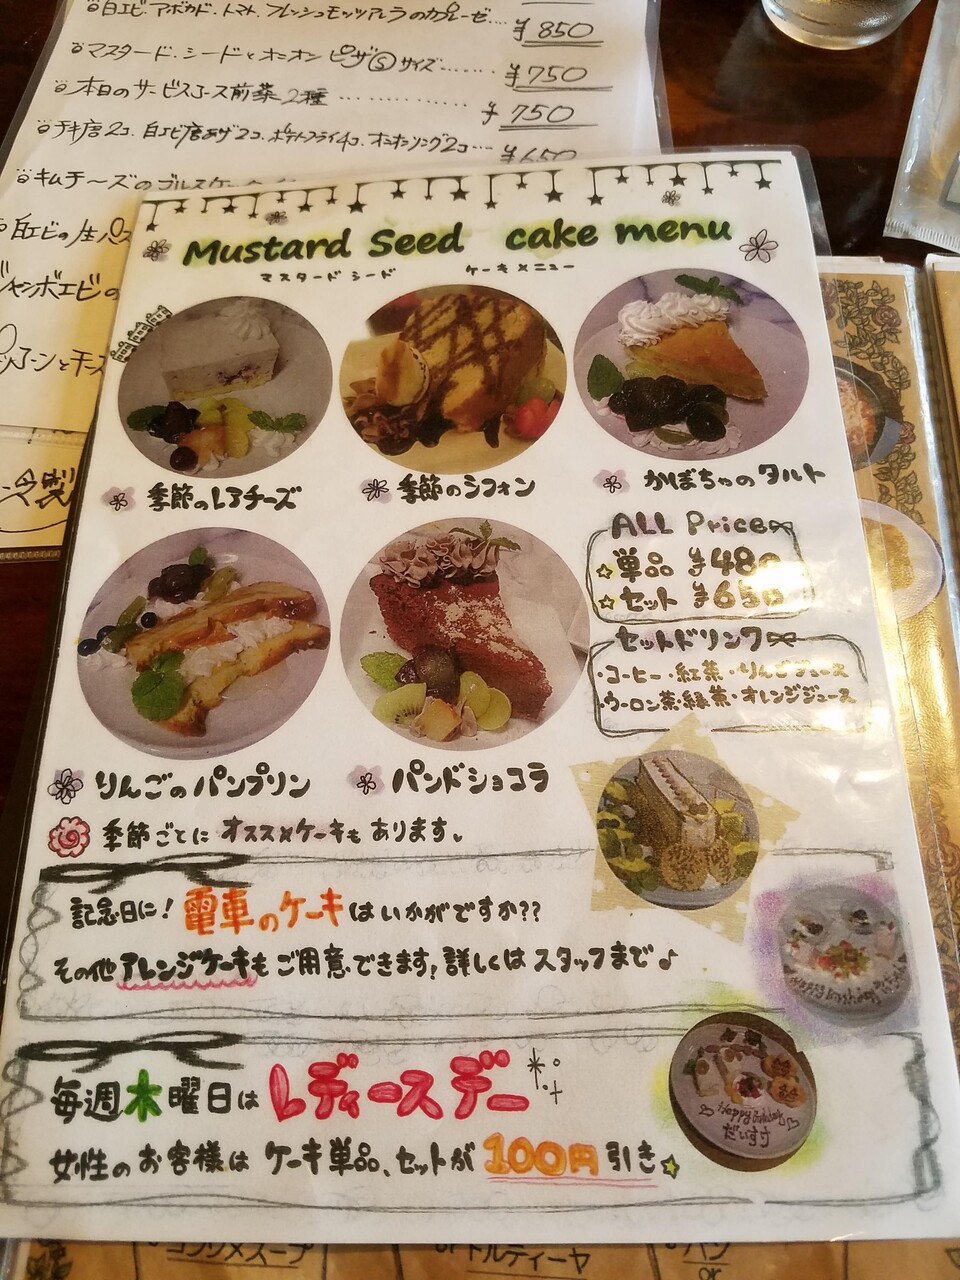 白エビ アボカド、トマト、フレッシュモッツアレラのカプレーゼ… ¥850
マスタード・シードとオニオン ピザⓈサイズ…… ¥750
本日のサービスコース前菜2種 ………… ¥750
チキ唐2コ、白エビ唐あげ2コ、ポテトフライ4コ、オニオンリング2コ… ¥650
キムチーズの
白エビの生
ジャンボエビの
冷製
Mustard Seed cake menu
マスタード シード ケーキメニュー
季節のレアチーズ
季節のシフォン
かぼちゃのタルト
ALL Price
単品 ¥480
セット ¥650
セットドリンク
・コーヒー・紅茶・りんごジュース
・ウーロン茶・緑茶・オレンジジュース
りんごのパンプリン
パンドショコラ
季節ごとにオススメケーキもあります。
記念日に!電車のケーキはいかがですか??
その他アレンジケーキもご用意できます!詳しくはスタッフまで♪
Happy Birthday
毎週木曜日はレディースデー
女性のお客様はケーキ単品、セットが100円引き
Happy Birthday
だいすけ
コンソメスープ
or トルティーヤ
パン
or